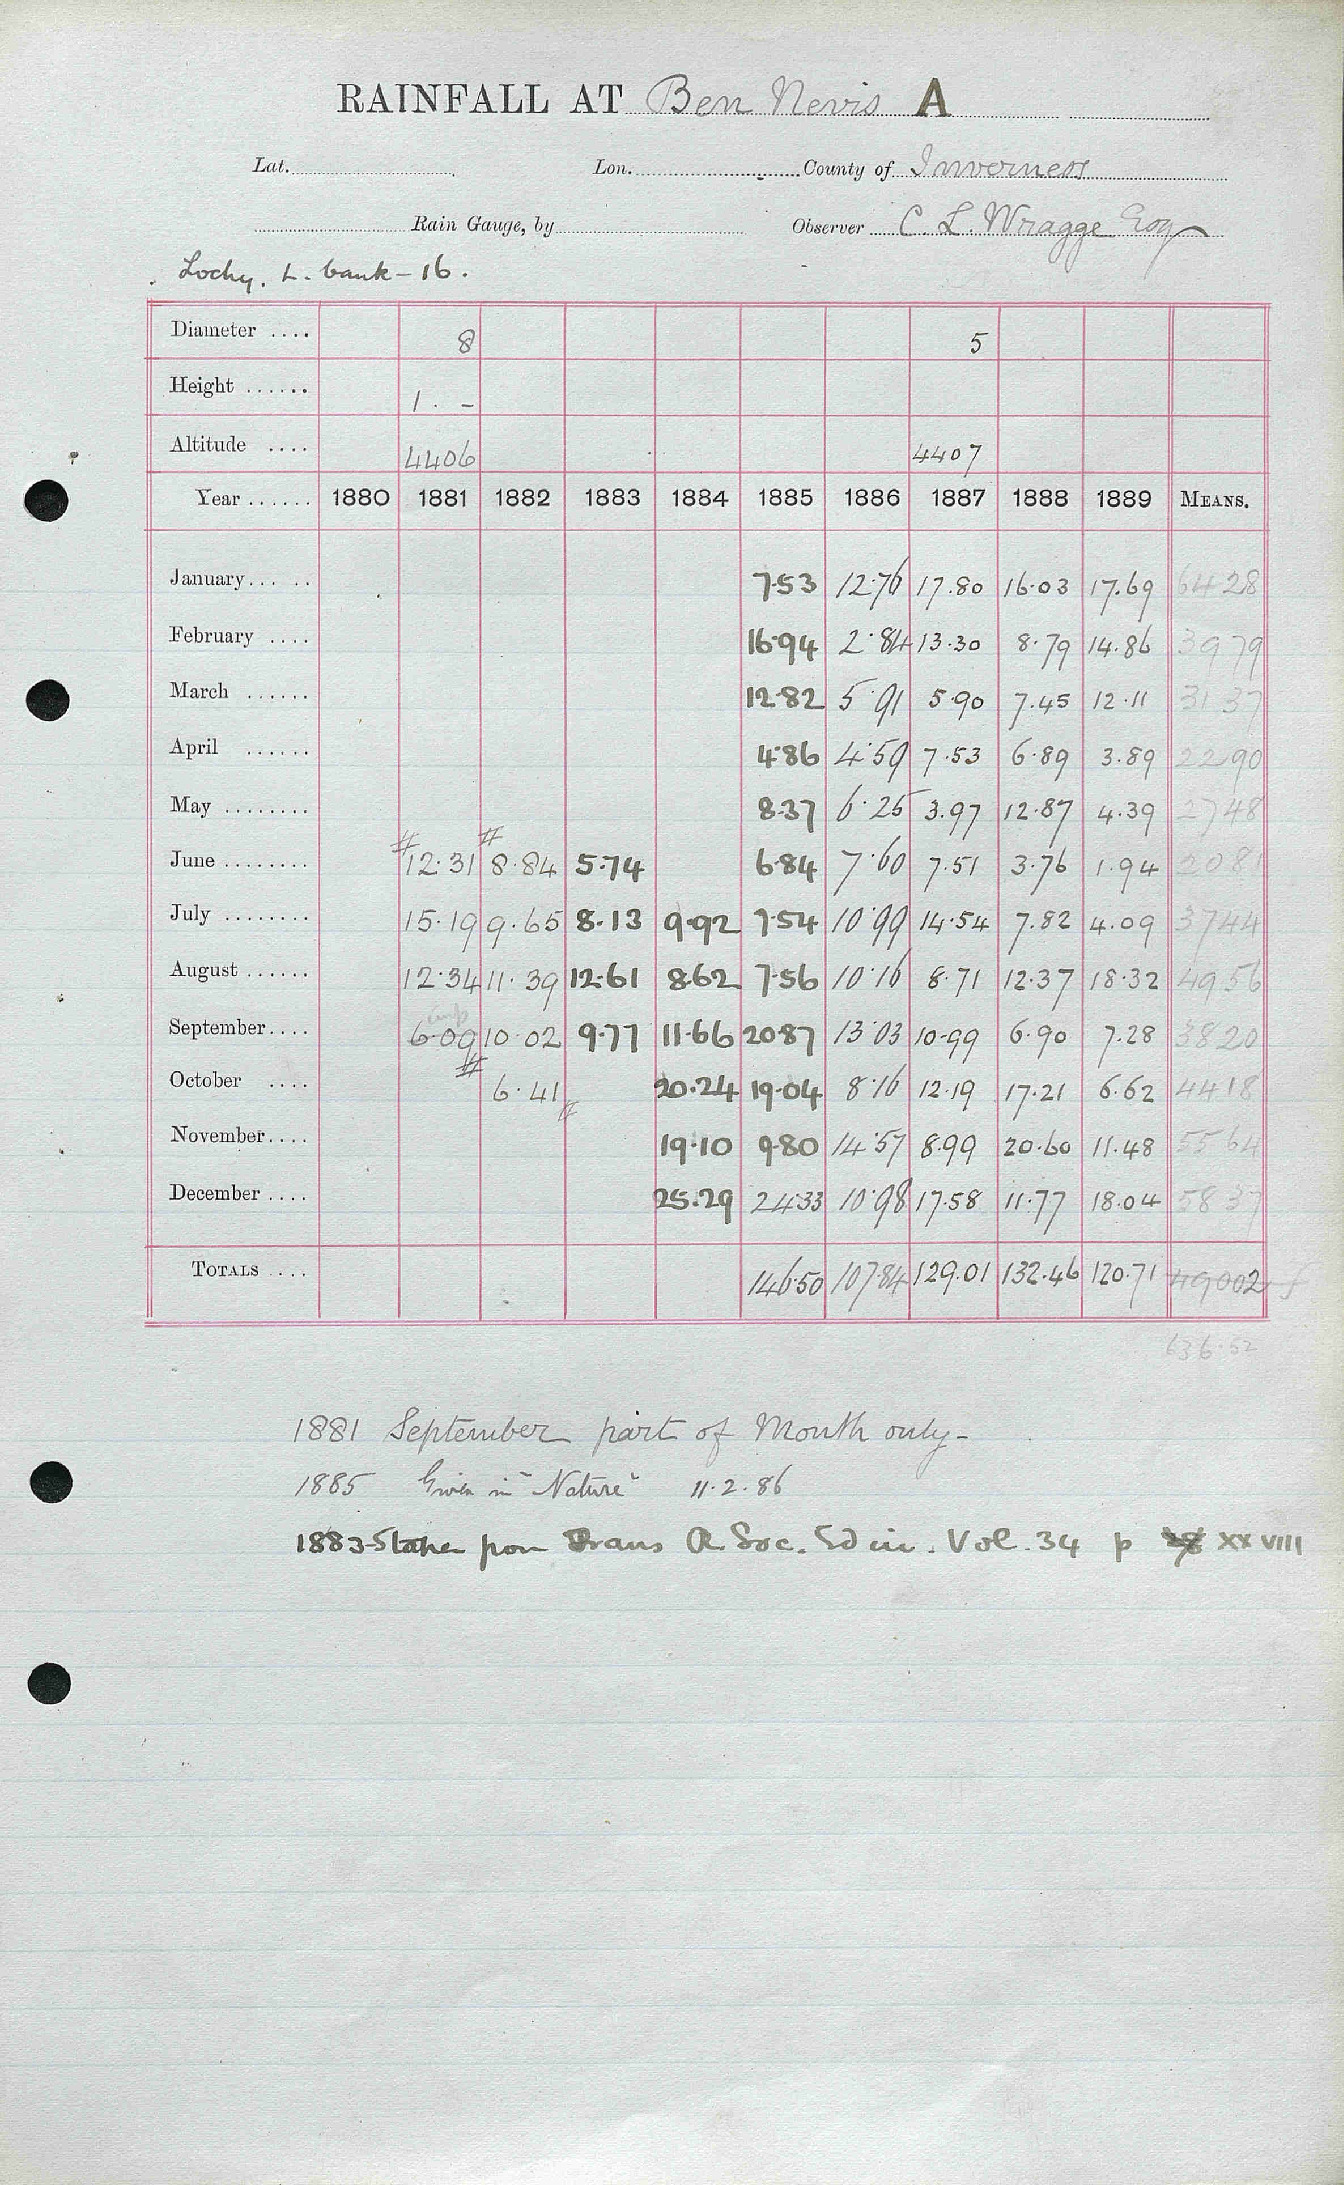 RAINFALL AT Ben Nevis A
Lat. Lon. County of Inverness
Rain Gauge, by Observer C L. Wragge Esq
Lochy. L. bank - 16.
Diameter .... 8 5
Height ...... 1 . -
Altitude .... 4406 4407
Year ...... 1880 1881 1882 1883 1884 1885 1886 1887 1888 1889 MEANS.
January ... .. 7.53 12.76 17.80 16.03 17.69 64 28
February .... 16.94 2.84 13.30 8.79 14.86 39 79
March ...... 12.82 5.91 5.90 7.45 12.11 31 37
April ...... 4.86 4.59 7.53 6.89 3.89 22 90
May ........ 8.37 6.25 3.97 12.87 4.39 27 48
June ........ #12.31 #8.84 5.74 6.84 7.60 7.51 3.76 1.94 20 81
July ........ 15.19 9.65 8.13 9.92 7.54 10.99 14.54 7.82 4.09 37 44
August ...... 12.34 11.39 12.61 8.62 7.56 10.16 8.71 12.37 18.32 49 56
September .... 6.09 10.02 9.77 11.66 20.87 13.03 10.99 6.90 7.28 38 20
October .... # 6.41 # 20.24 19.04 8.16 12.19 17.21 6.62 44 18
November .... 19.10 9.80 14.57 8.99 20.60 11.48 55 64
December .... 25.29 24.33 10.98 17.58 11.77 18.04 58 37
TOTALS .... 146.50 107.84 129.01 132.46 120.71 49002
636.52
1881 September part of Month only -
1885 Given in "Nature" 11.2.86
1883-5 taken from Trans R Soc. Edin. Vol. 34 p XXVIII